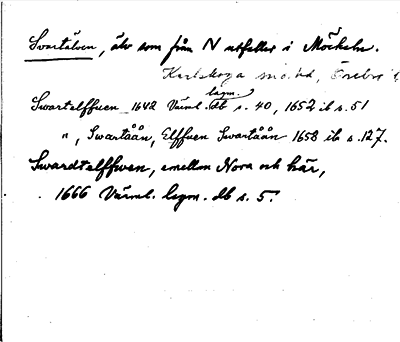 Svartälven, älv som från N utfaller i Möckeln.
Karlskoga sn o. bd, Örebro l.
Swartelffuen 1642 Värml. lagm. db s. 40, 1652 ib s. 51
", Swartåån, Elffuen Swartåån 1658 ib s. 127.
Swardtelffwen, emellan Nora och här,
1666 Värml. lagm. db s. 5.